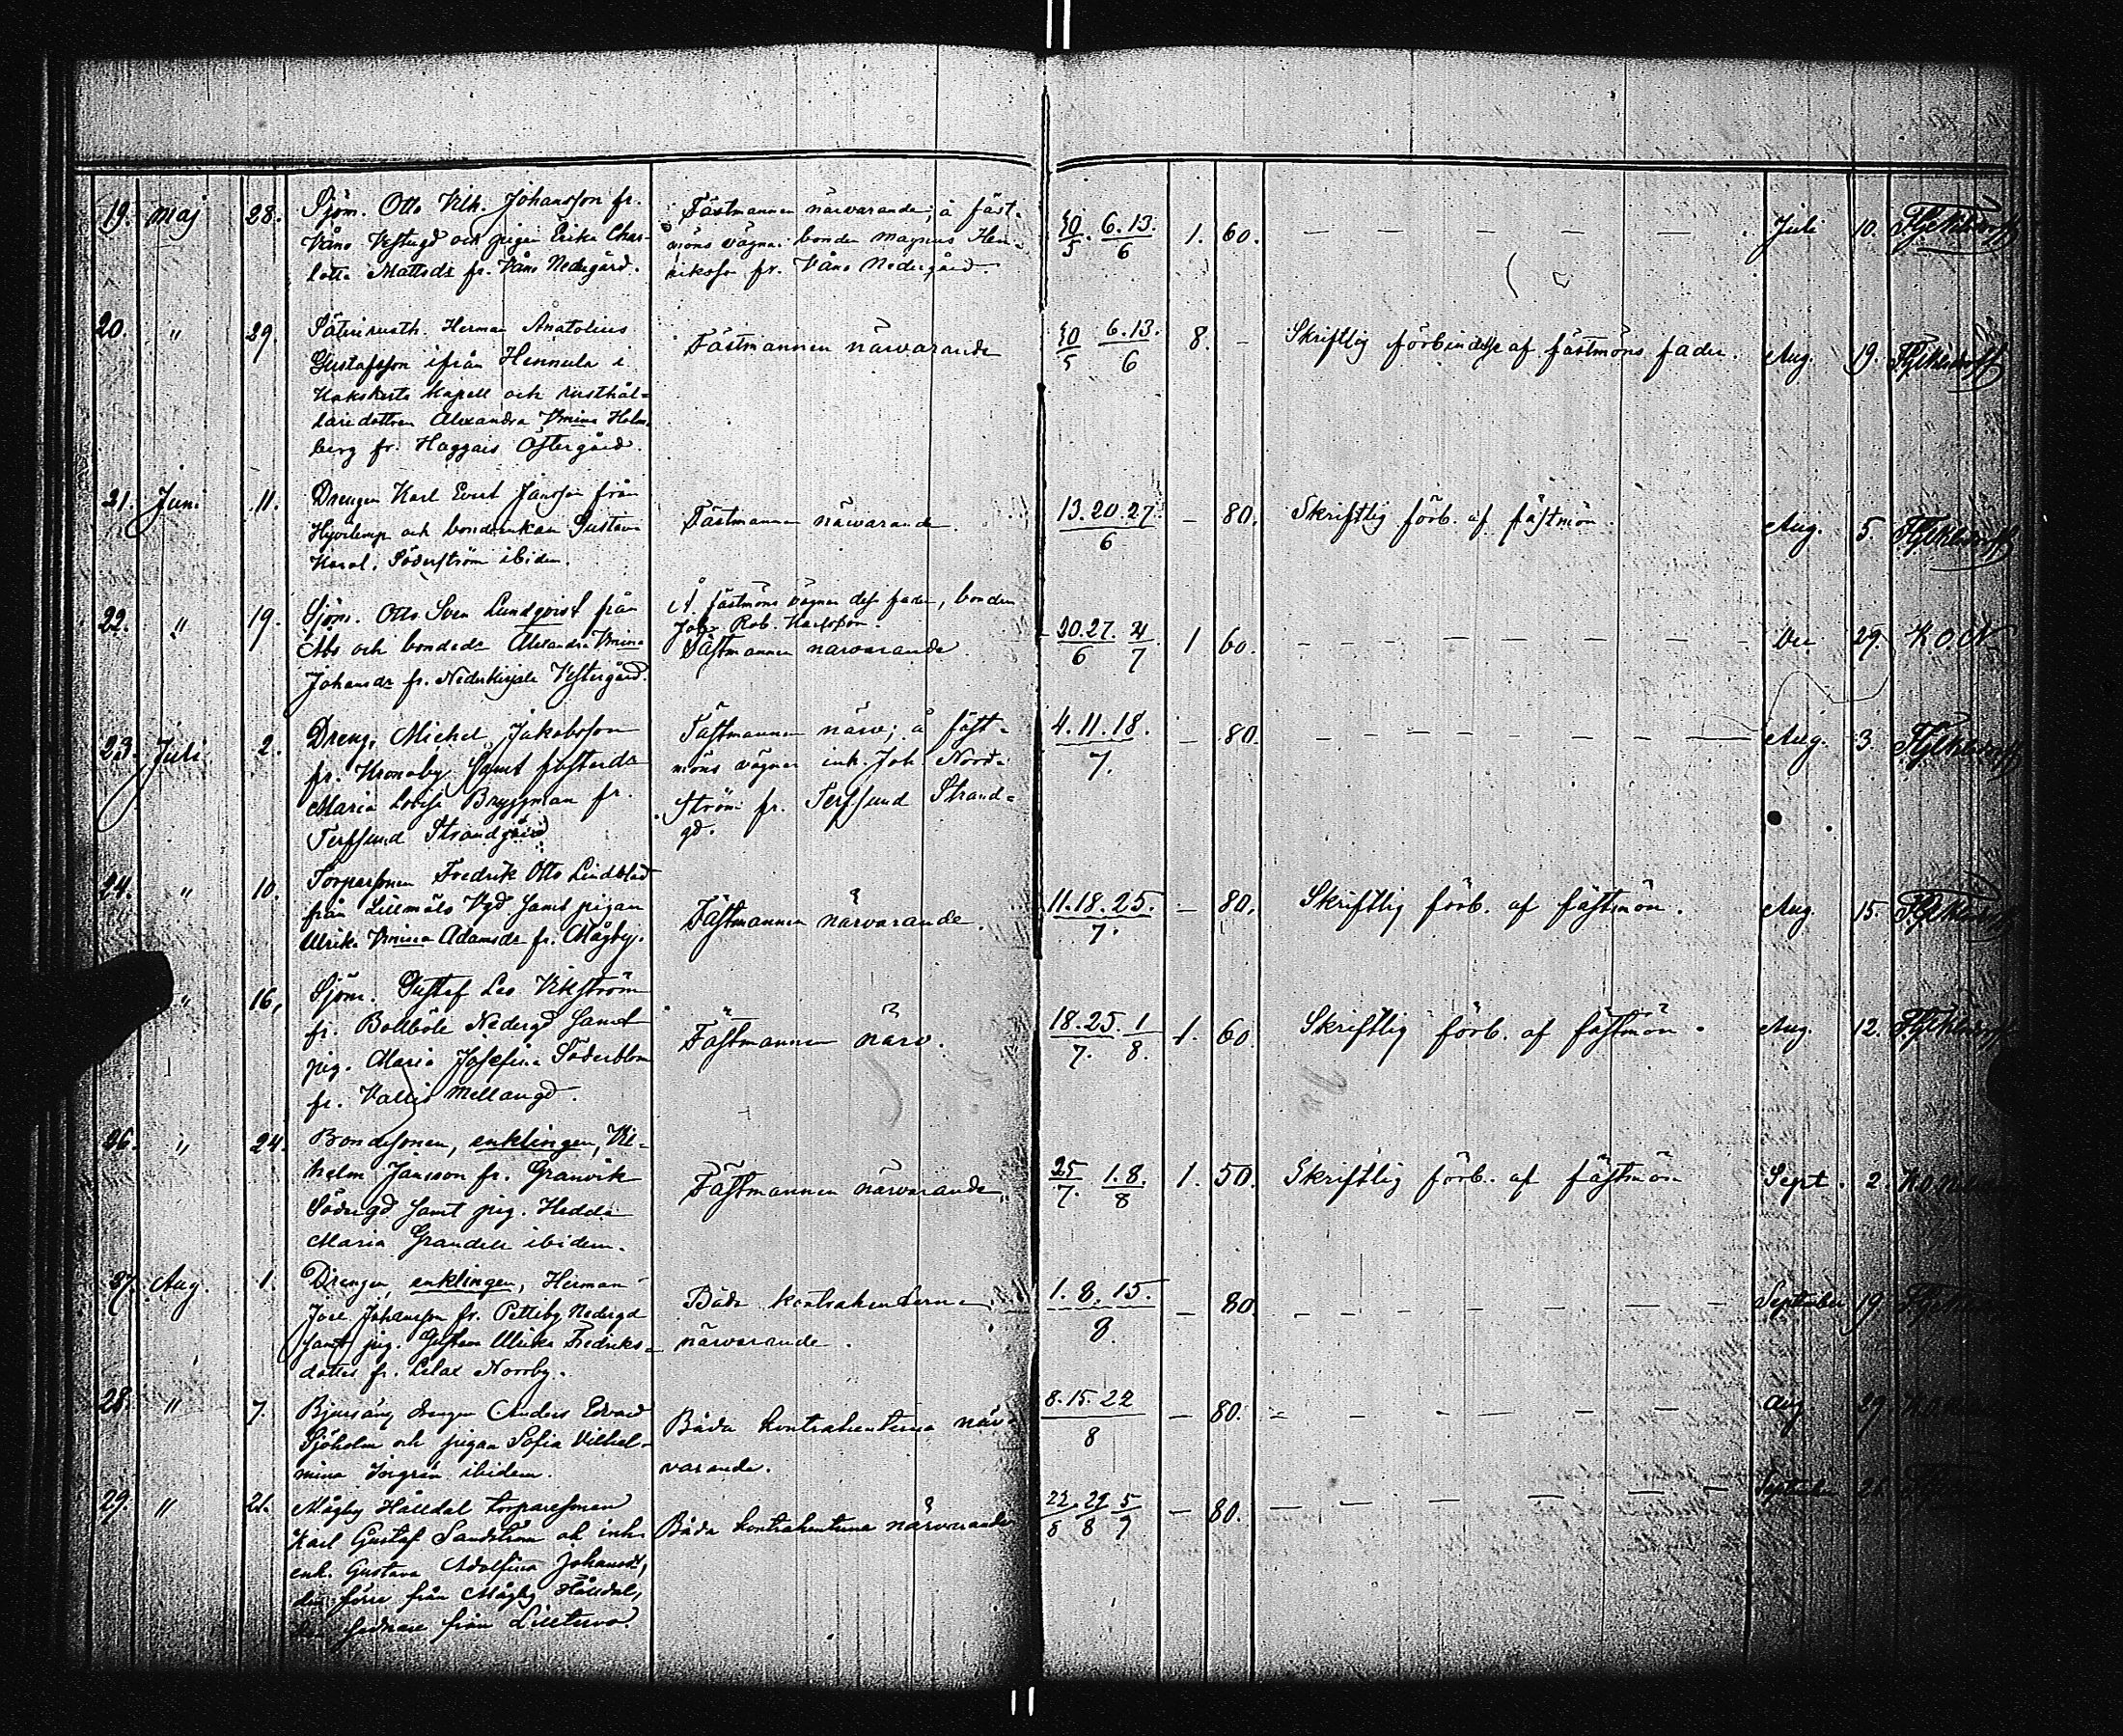 19. Maj 28. Sjöm. Otto Vilh. Johansson fr.
Våno Vestergd och pigan Erika Char-
lotta Mattsdr fr. Våno Nedergård.
Fästmannen närvarande; å fäst-
möns vägnar bonden Magnus Hen-
riksson fr. Våno Nedergård.
30/5. 6.13./6 1. 60. — — — Juli 10.
20. " 29. Säterirusth. Herman Anatolius
Gustafsson ifrån Hennula i
Kakskerta Kapell och rusthål-
laredottren Alexandra Vmina Holm-
berg fr. Haggais Östergård.
Fästmannen närvarande
30/5 6.13./6 8. - Skriftlig förbindelse af fästmöns fader. Aug. 19.
21. Juni 11. Drengen Karl Evert Jansson från
och bondenkan Gustava
Karol. Söderström ibidem.
Fästmannen närvarande.
13.20.27./6 — 80. Skriftlig förb. af fästmön. Aug. 5.
22. " 19. Sjöm. Otto Sven Lundqvist från
Åbo och bondedr Alexandra Vmina
Johansdr fr. Nederkirjala Vestergård.
Å fästmöns vägnar dess fader, bonden
Joh. Rob. Karlsson.
Fästmannen närvarande.
20.27./6 4/7 1 60. — — — Dec 29. K.O.N.
23. Juli 2. Dreng. Michel Jakobsson
fr. Kronoby samt fosterdr
Maria Lovisa Bryggman fr.
Terfsund Strandgård.
Fästmannen närv; å fäst-
möns vägnar inh. Joh Nord-
ström fr. Terfsund Strand-
gd.
4.11.18./7. — 80. — — — Aug. 3.
24. " 10. Torparsonen Fredrik Otto Lindblad
från Lillmälö Vgd samt pigan
Ulrika Vmina Adamsdr fr. Mågby.
Fästmannen närvarande.
11.18.25./7. — 80. Skriftlig förb. af fästmön. Aug. 15.
" 16. Sjöm. Gustaf Leo Vikström
fr. Bollböle Nedergd samt
pig. Maria Josefina Söderblom
fr. Vallis Mellangd.
Fästmannen närv.
18.25./7. 1/8. 1. 60. Skriftlig förb. af fästmön. Aug. 12.
26. " 24. Bondesonen, enklingen, Vil-
helm Jansson fr. Granvik
Södergd samt pig. Hedda
Maria Grandell ibidem.
Fästmannen närvarande.
25/7. 1.8./8 1. 50. Skriftlig förb. af fästmön Sept. 2.
27. Aug. 1. Drengen, enklingen, Herman
Joel Johansson fr. Petteby Nedergd
samt pig. Gustava Ulrika Fredriks-
dotter fr. Lelax Norrby.
Båda kontrahenterna
närvarande.
1.8.15./8. — 80. — — — September 19.
28. " 7. Bjursäng drengen Anders Edvard
Sjöholm och pigan Sofia Vilhel-
mina ibidem.
Båda kontrahenterna när-
varande.
8.15.22/8 — 80. — — — Aug 29.
29. " 21. Mågby Hålldal torparesonen
Karl Gustaf Sandström och inh.
enk. Gustava Adolfina Johansdr,
den förre från Mågby Hålldal,
den sednare från
Båda kontrahenterna närvarande
22/8. 29/8 5/9 — 80. — — — September